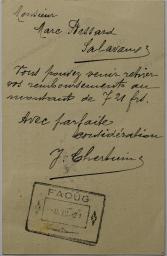 Monsieur
Marc Bessard
Salavaux
Vous pouvez venir retirer
vos remboursements au
montant de 721 frs.
Avec parfaite
considération
FAOUG